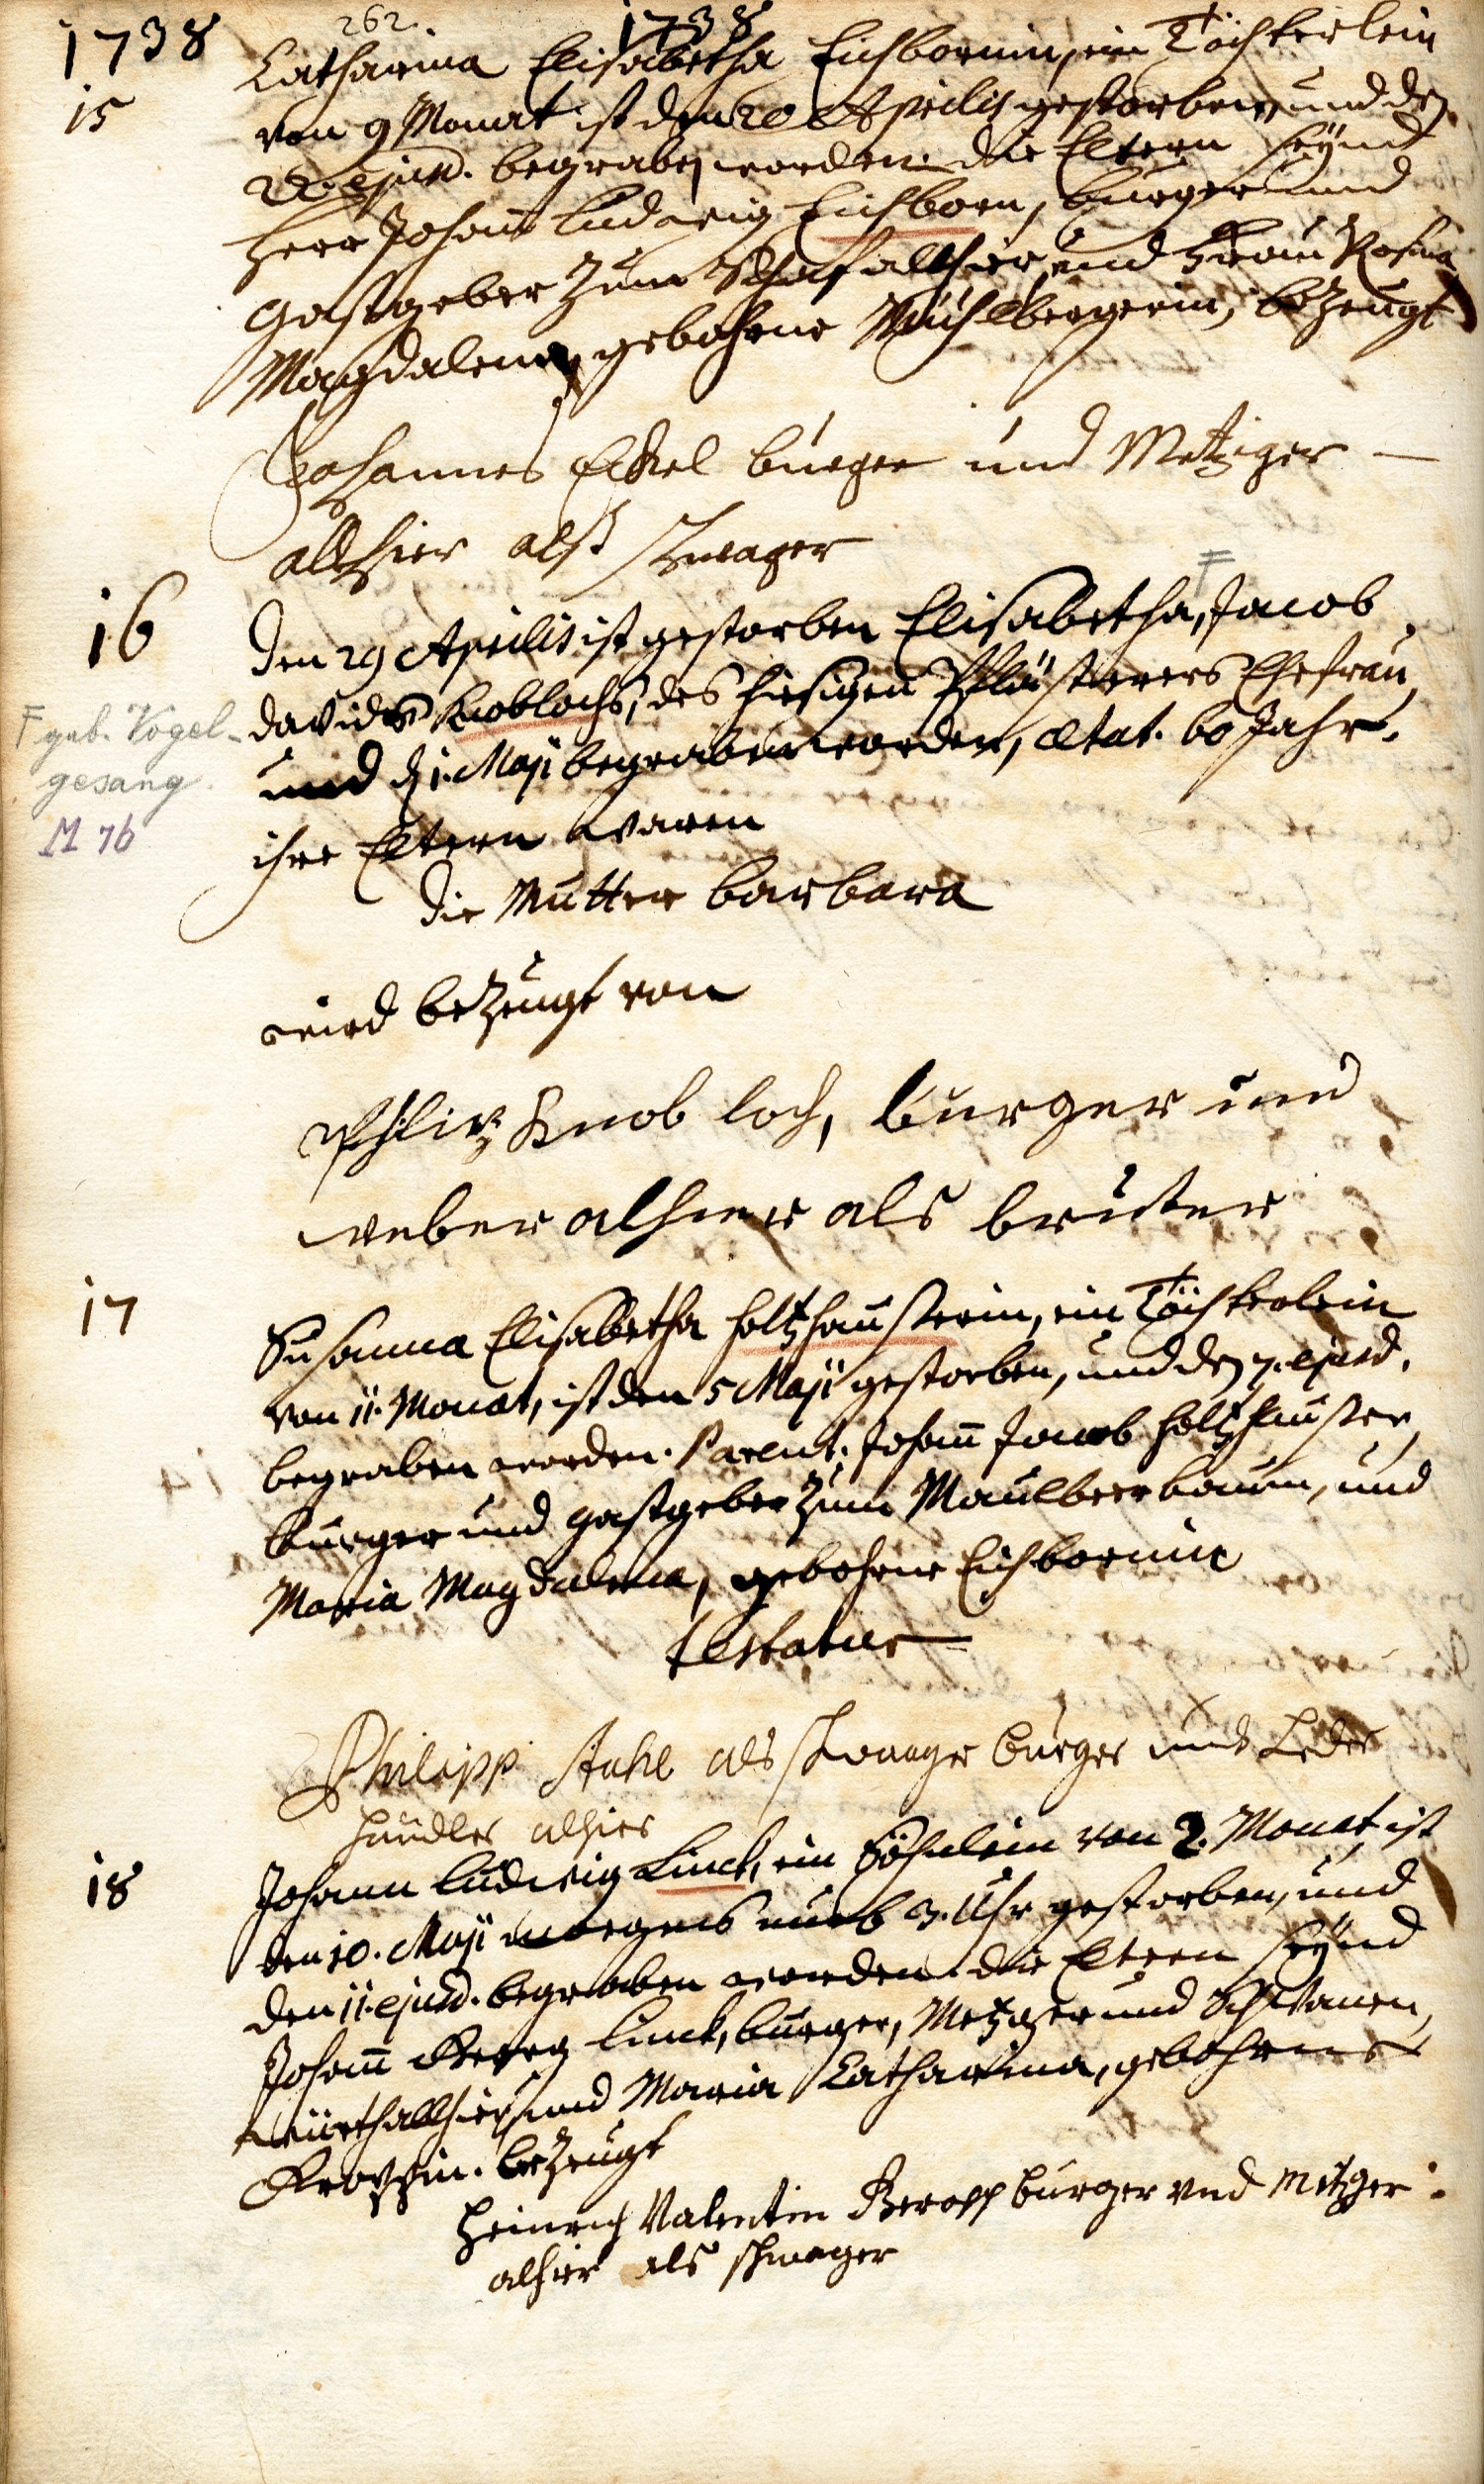 262.
1738 1738
15
Catharina Elisabetha Eichbornin, ein Töchterlein
von 9 Monat ist den 20 Aprilis gestorben, und den
22. ejusd. begraben worden. die Eltern seynd
Herr Johann Ludwig Eichborn, burger und
Gastgeber zum Schaf allhier, und Frau Rosina
Magdalena, gebohrne Mühlbergerin, bezeugt
Johannes Eckel burger und Metziger –
allhier alß schwager
16
Den 29 Aprilis ist gestorben Elisabetha, F Jacob
Davids Knoblochs, des hiesigen Pflästerers Ehefrau,
und d. 1. Maji begraben worden, ætat. 60 Jahr.
F geb. Vogel-
gesang.
M 76
ihre Eltern waren
die Mutter barbara
wird bezeugt von
Philip Knob loch, burger und
weber alhier als bruter
17
Susanna Elisabetha Holtzhausserin, ein Töchterlein
von 11. Monat, ist den 5 Maji gestorben, und den 7. ejusd.
begraben worden. Parent. Johann Jacob Holtzhausser,
burger und gastgeber zum Maulbeerbaum, und
Maria Magdalena, gebohrne Eichbornin
testatur
Philipp Stahl als schwager burger und Leder
händler alhier
18
Johann Ludwig Linck, ein Söhnlein von 2. Monat, ist
den 10. Maji morgens umb 3. Uhr gestorben, und
den 11. ejusd. begraben worden. die Eltern seynd
Johann Georg Linck, burger, Metzger und Schwanen,
würth allhier, und Maria Catharina, gebohrne
bezeugt
Heinrich Valentin burger und Metzger
alhier als schwager